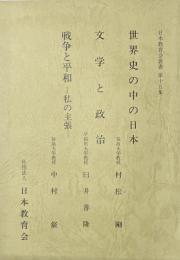 日本教育会叢書 第十五集
世界史の中の日本
筑波大学教授 村松 剛
文学と政治
早稲田大学教授 臼井善隆
戦争と平和―私の主張
杏林大学教授 中村 粲
社団法人 日本教育会